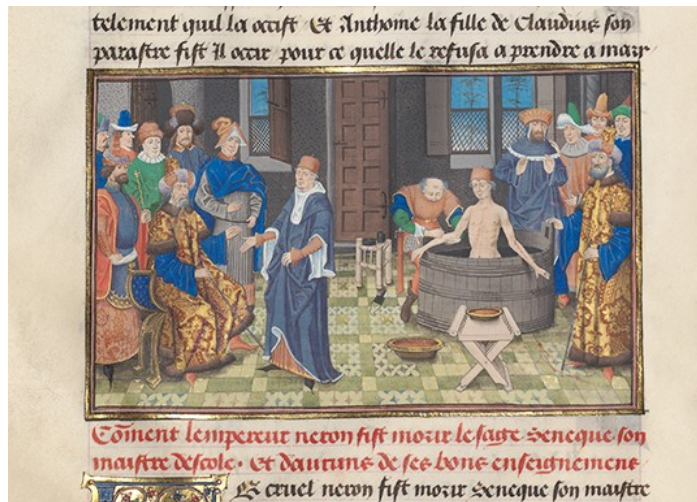 telement quil la occist Et Anthome la fille de Claudius son
parastre fist Il occir pour ce quelle le refusa a prendre a mary
Coment lempereur neron fist morir le sage Seneque son
maistre descole. Et dautuns de ses bons enseignemens
Le cruel neron fist morir Seneque son maistre